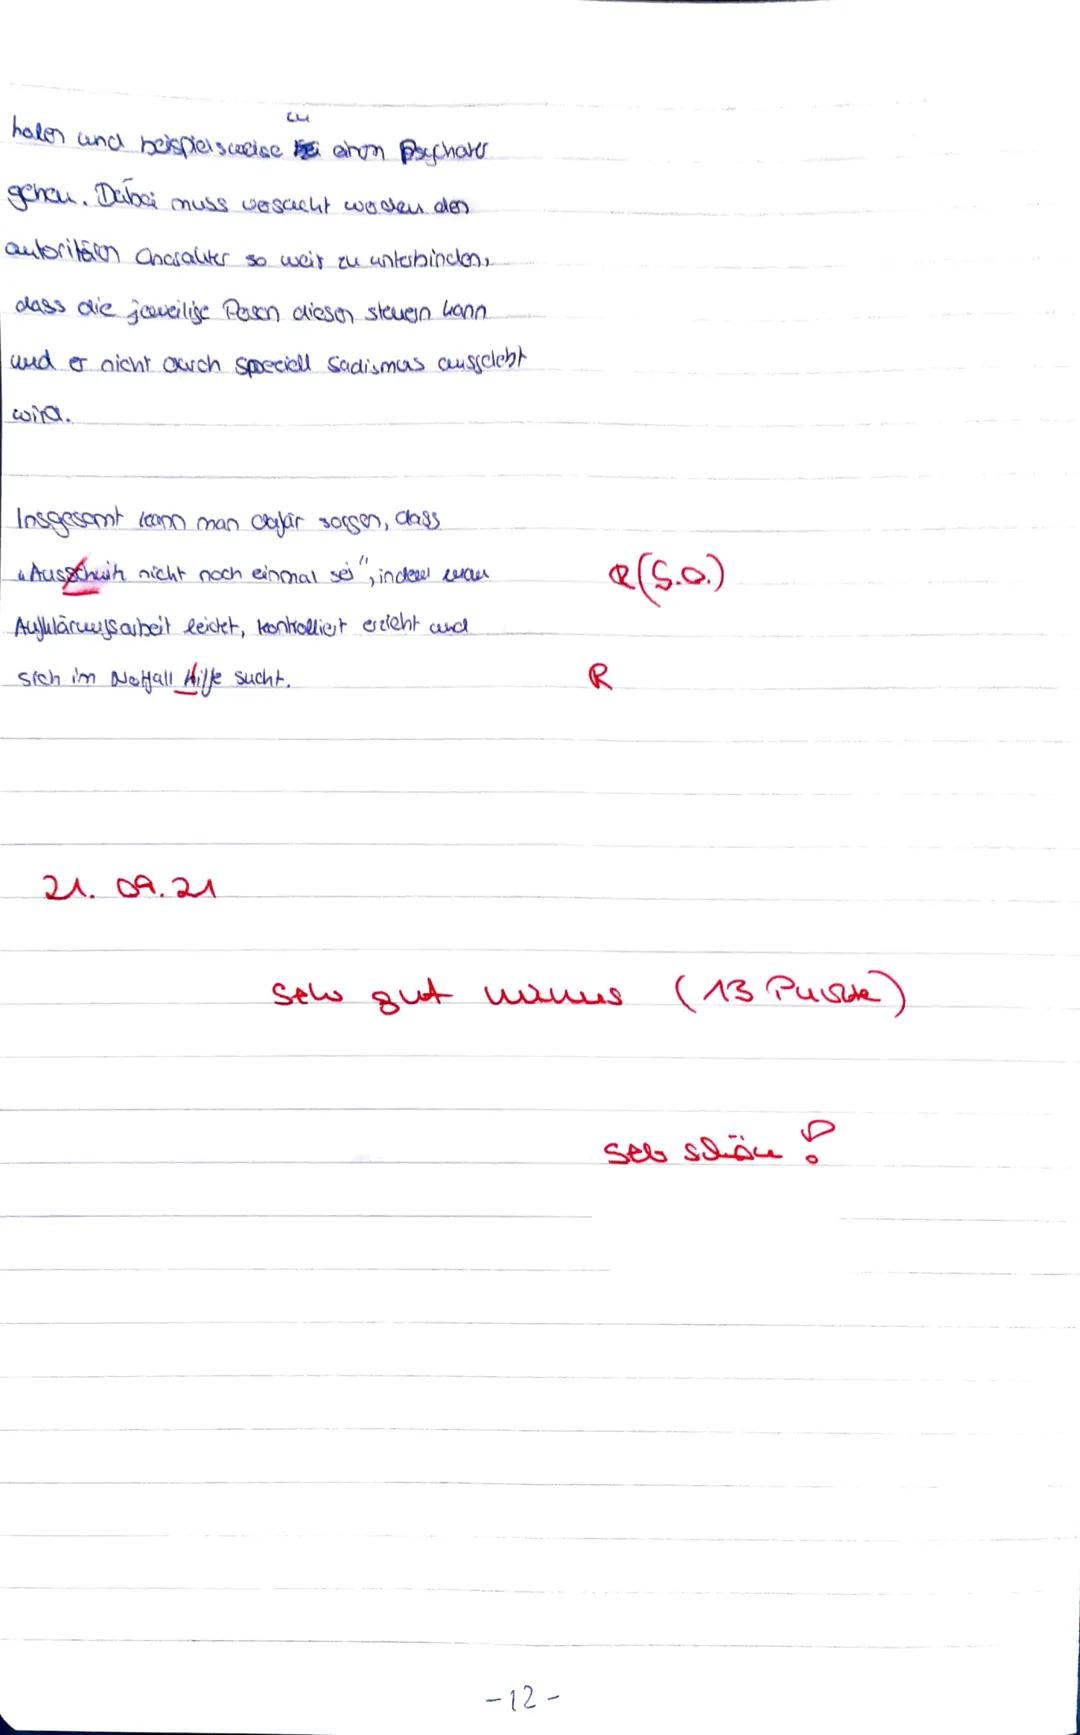 zu
holen und beispielsweise bei einen Psychater
gehen. Dabei muss versucht werden den
autoritären Charakter so weit zu unterbinden,
dass die jeweilige Person diesen steuern kann
und er nicht durch speciell Sadismus ausgelebt
wird.
Insgesamt kann man dafür sorgen, dass
„Ausschwitz nicht noch einmal sei", indem man
R (s.o.)
Aufklärungsarbeit leistet, kontrolliert erzieht und
sich im Notfall Hilfe sucht.
R
21.09.21
sehr gut minus (13 Punkte)
sehr schön!
-12-